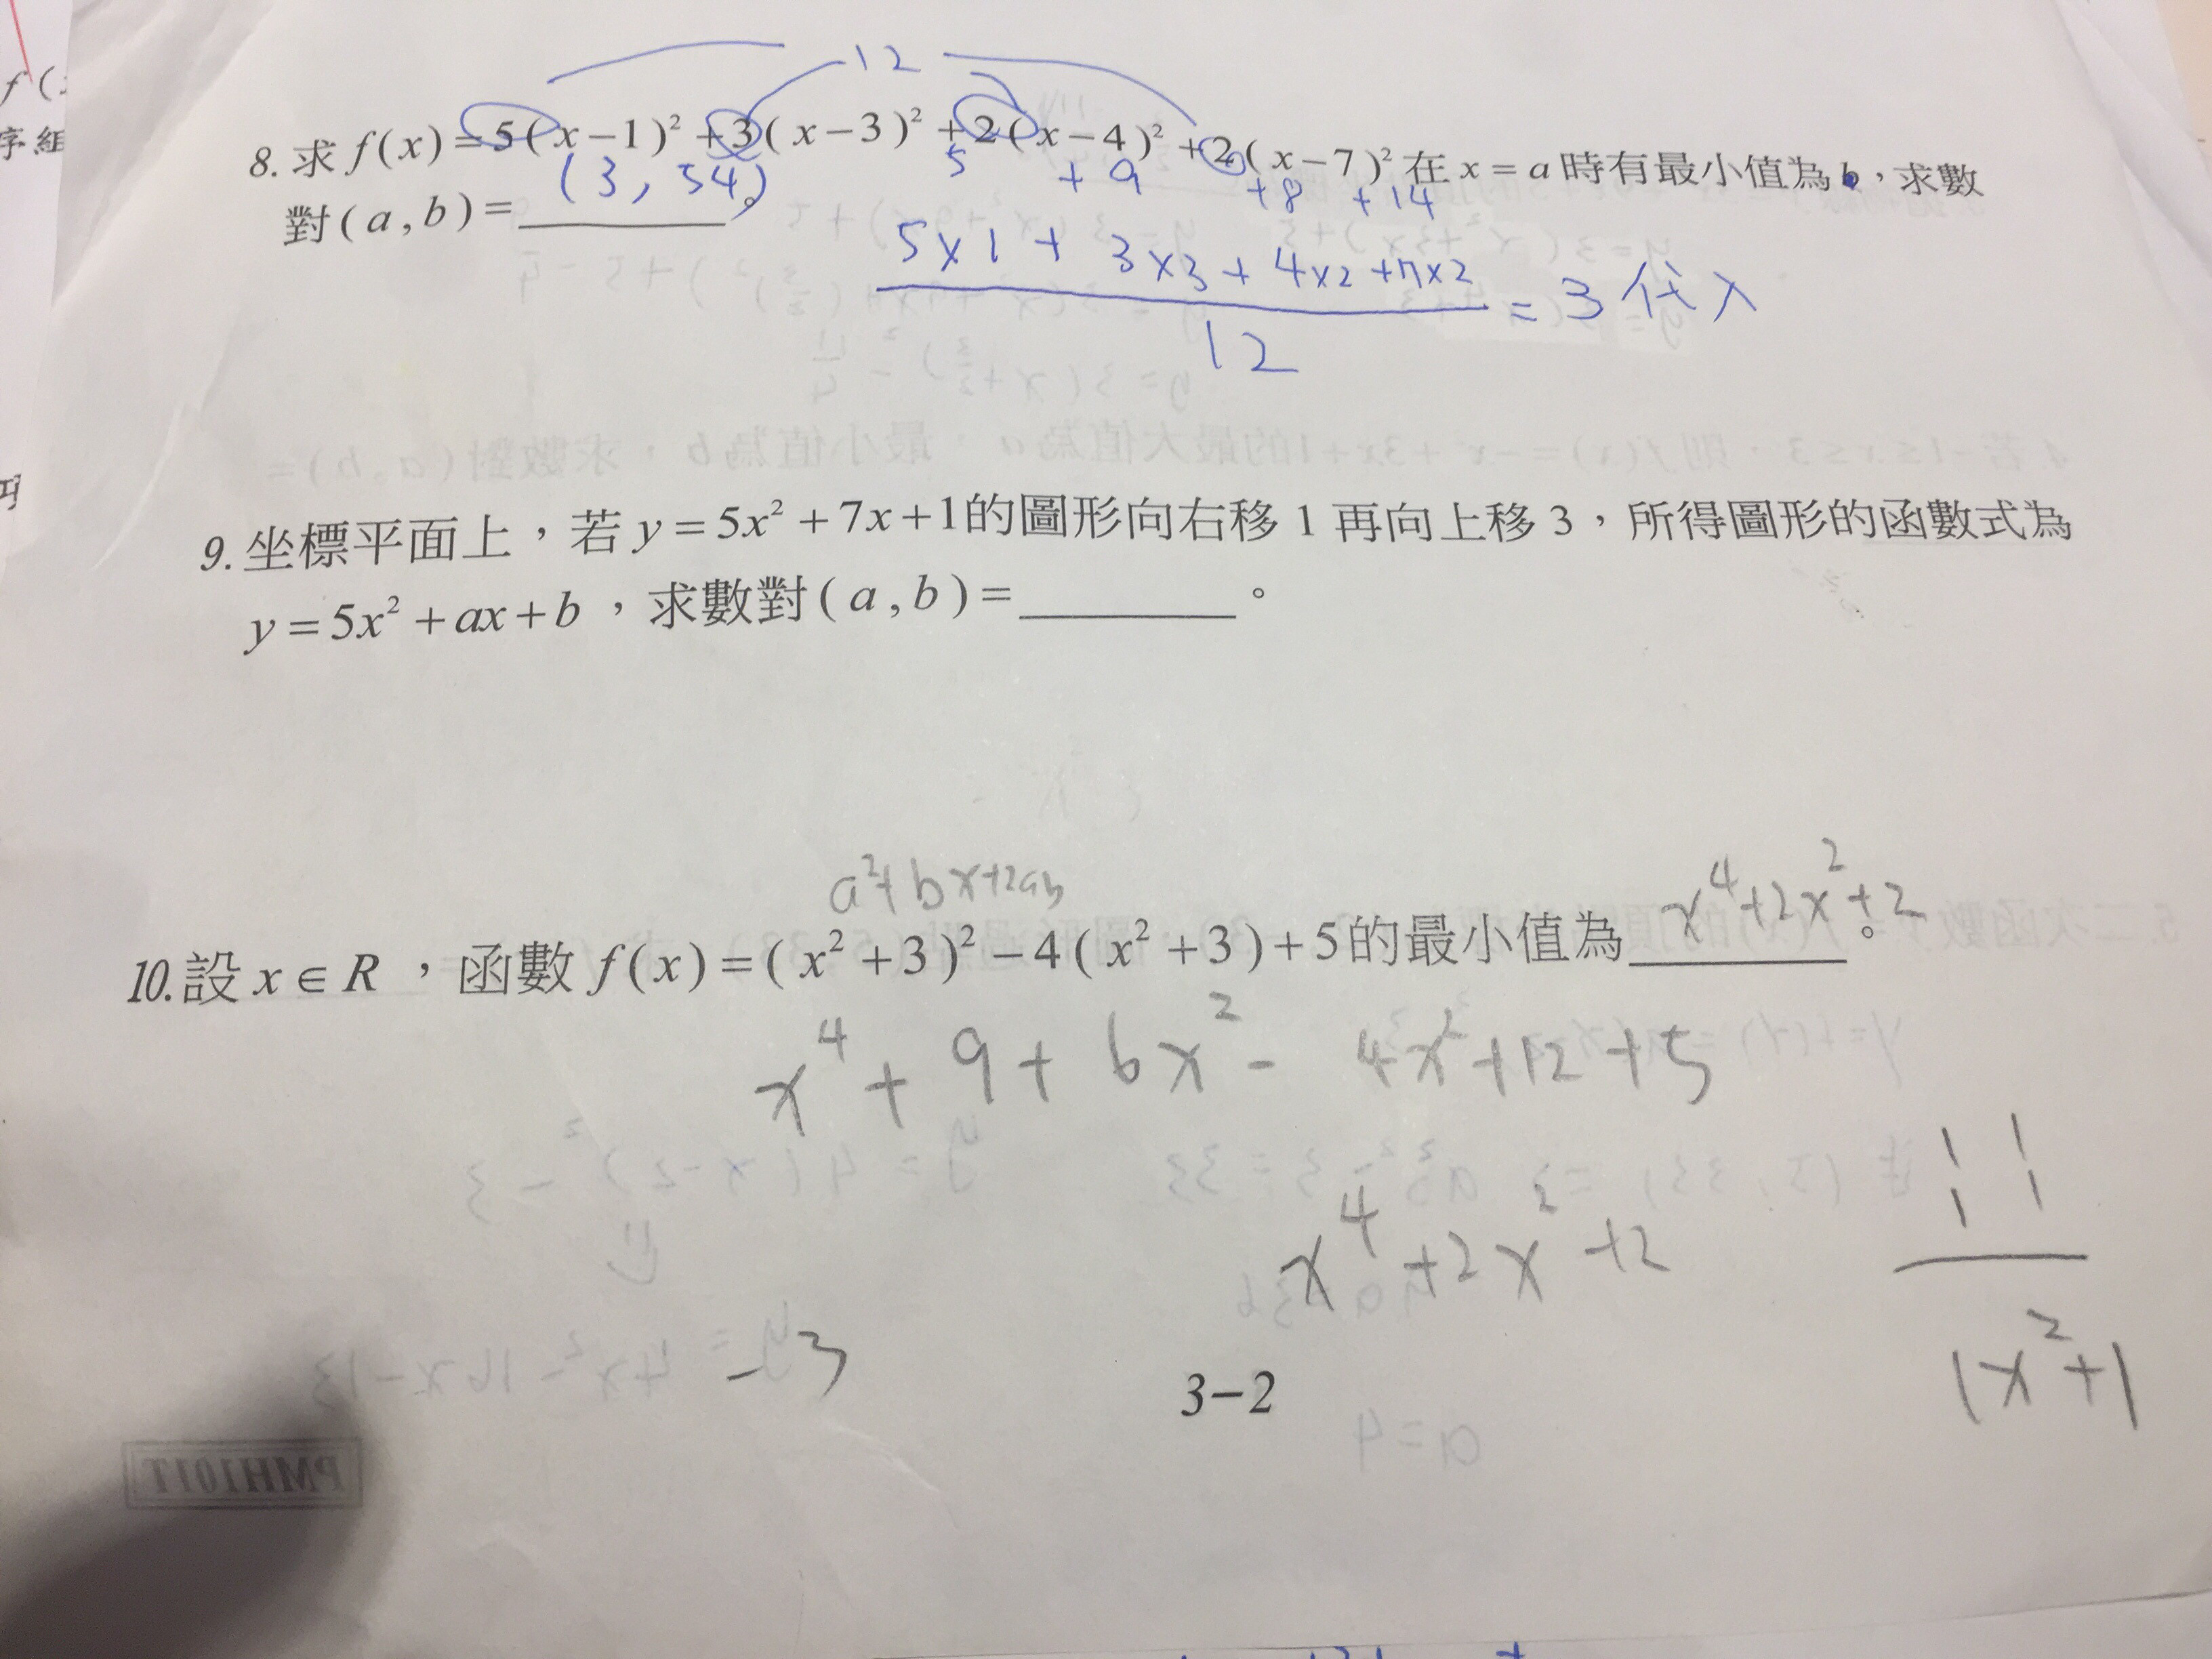 f(
序組
12
8. 求 f(x)=5(x−1)²+3(x−3)²+2(x−4)²+2(x−7)² 在 x=a 時有最小值為 b，求數
對(a,b)= (3, 54)。
5 + 9 + 8 + 14
5×1 + 3×3 + 4×2 + 7×2
12
= 3 代入
9. 坐標平面上，若 y=5x²+7x+1 的圖形向右移 1 再向上移 3，所得圖形的函數式為
y=5x²+ax+b，求數對(a,b)=________。
a²+bx+2ab
10. 設 x∈R，函數 f(x)=(x²+3)²−4(x²+3)+5 的最小值為 x⁴+2x²+2。
x⁴ + 9 + 6x² − 4x²+12+5
x⁴+2x²+2
1x²+1
−3
3−2
PMH101T